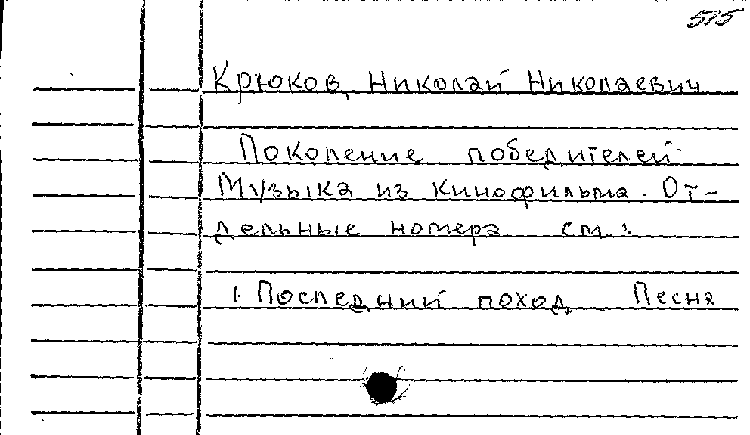 515
Крюков, Николай Николаевич
Поколение победителей
Музыка из кинофильма. От-
дельные номера см:
1. Последний поход Песня